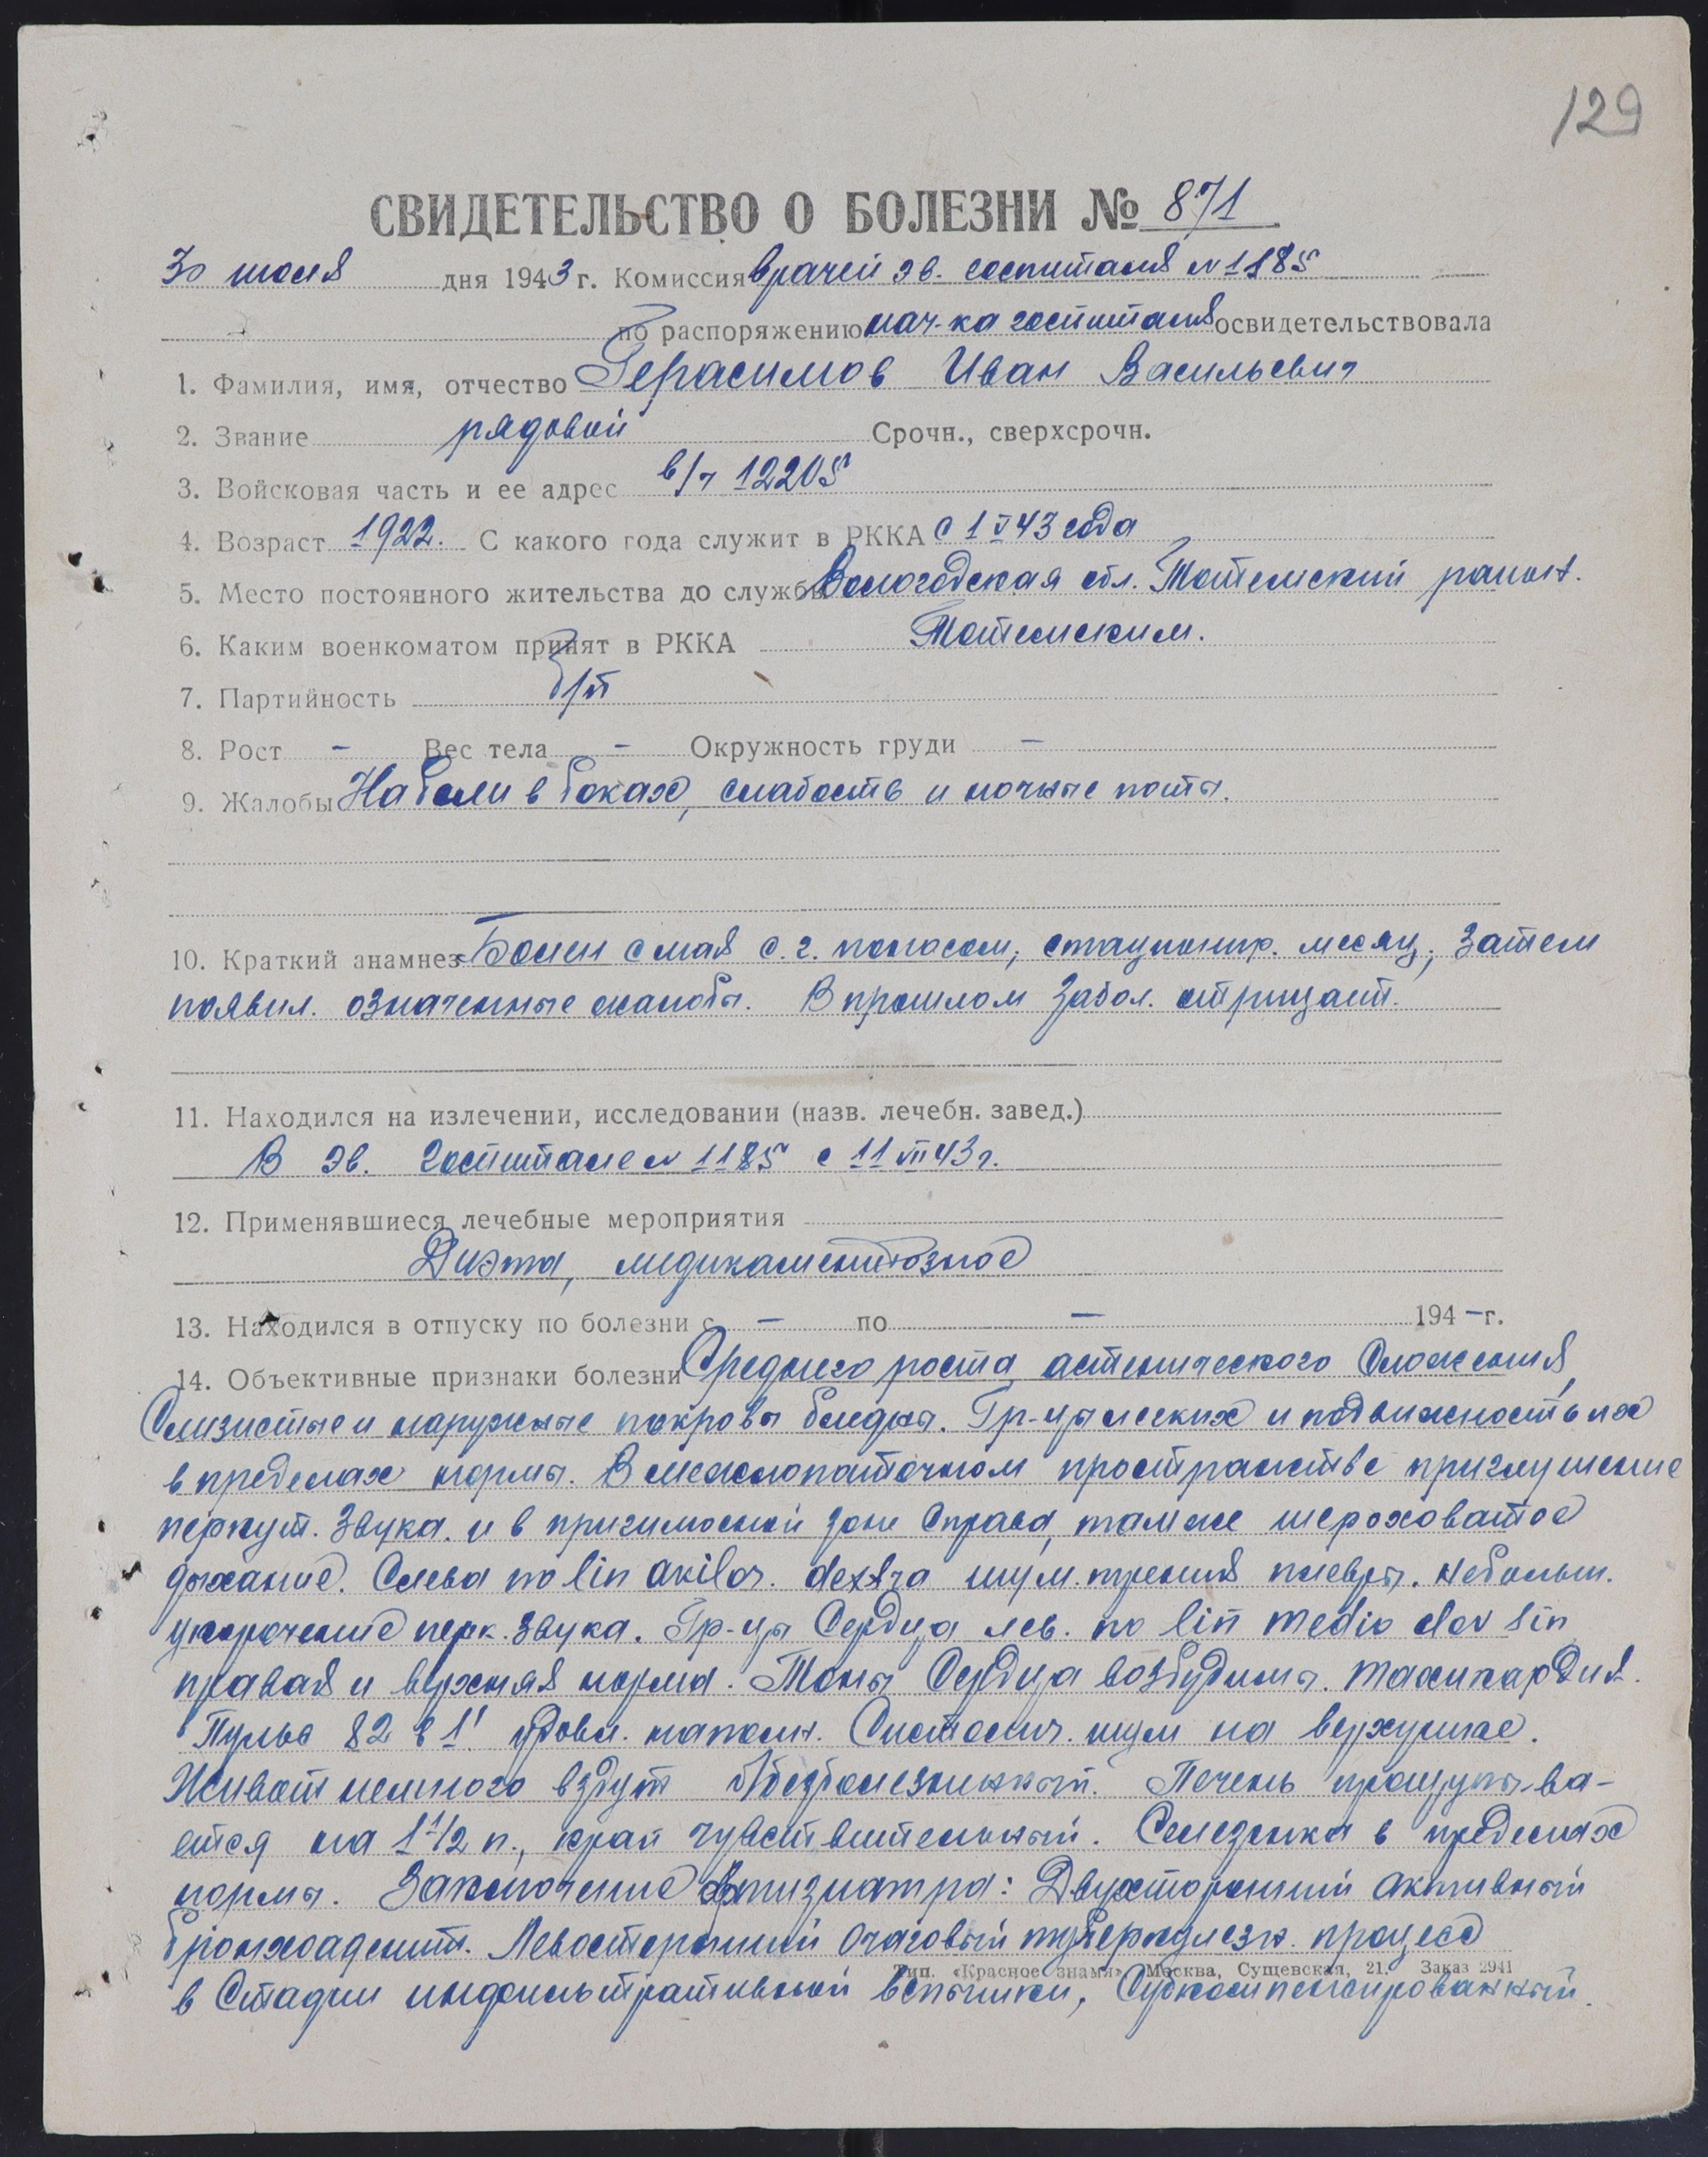 129
СВИДЕТЕЛЬСТВО О БОЛЕЗНИ № 871
30 июля дня 1943 г. Комиссия врачей эв. госпиталя N 1185
по распоряжению нач-ка госпиталя освидетельствовала
1. Фамилия, имя, отчество Герасимов Иван Васильевич
2. Звание рядовой Срочн., сверхсрочн.
3. Войсковая часть и ее адрес в/ч 12205
4. Возраст 1922. С какого года служит в РККА с 1 V 43 года
5. Место постоянного жительства до службы Вологодская обл. Тотемский район.
6. Каким военкоматом принят в РККА Тотемским.
7. Партийность б/п
8. Рост - Вес тела - Окружность груди -
9. Жалобы На боли в боках, слабость и ночные поты.
10. Краткий анамнез Болен с мая с.г. поносом, стационир. месяц, затем
появил. означенные жалобы. В прошлом забол. отрицает.
11. Находился на излечении, исследовании (назв. лечебн. завед.)
В эв. госпитале N 1185 с 11 VII 43 г.
12. Применявшиеся лечебные мероприятия
Диэта, медикаментозное
13. Находился в отпуску по болезни с - по - 194 - г.
14. Объективные признаки болезни Среднего роста, астенического сложения,
Слизистые и наружные покровы бледны. Гр-цы легких и подвижность их
в пределах нормы. В межлопаточном пространстве приглушение
перкут. звука. и в прикилосной зоне справа, там же шероховатое
дыхание. Слева по lin axilar. dextra шум. трения плевры. Небольш.
укорочение перк. звука. Гр-цы Сердца лев. по lin medio clav sin
правая и верхняя норма. Тоны Сердца возбудимы. Тахикардия.
Пульс 82 в 1' удовл. наполн. Систолич. шум на верхушке.
Живот немного вздут безболезненный. Печень прощупыва-
ется на 1 1/2 п., край чувствительный. Селезенка в пределах
нормы. Заключение фтизиатра: Двухсторонний активный
бронхоаденит. Левосторонний очаговый туберкулезн. процесс
Тип. «Красное знамя» Москва, Сущевская, 21. Заказ 2941
в стадии инфильтративной вспышки, Субкомпенсированный.